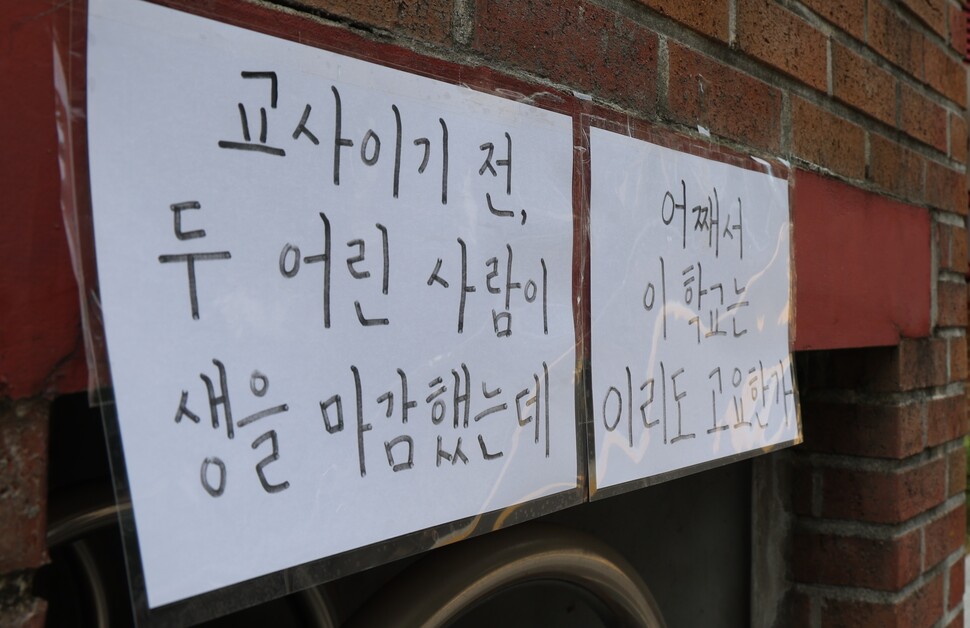 교사이기 전,
두 어린 사람이
생을 마감했는데
어째서
이 학교는
이리도 고요한가